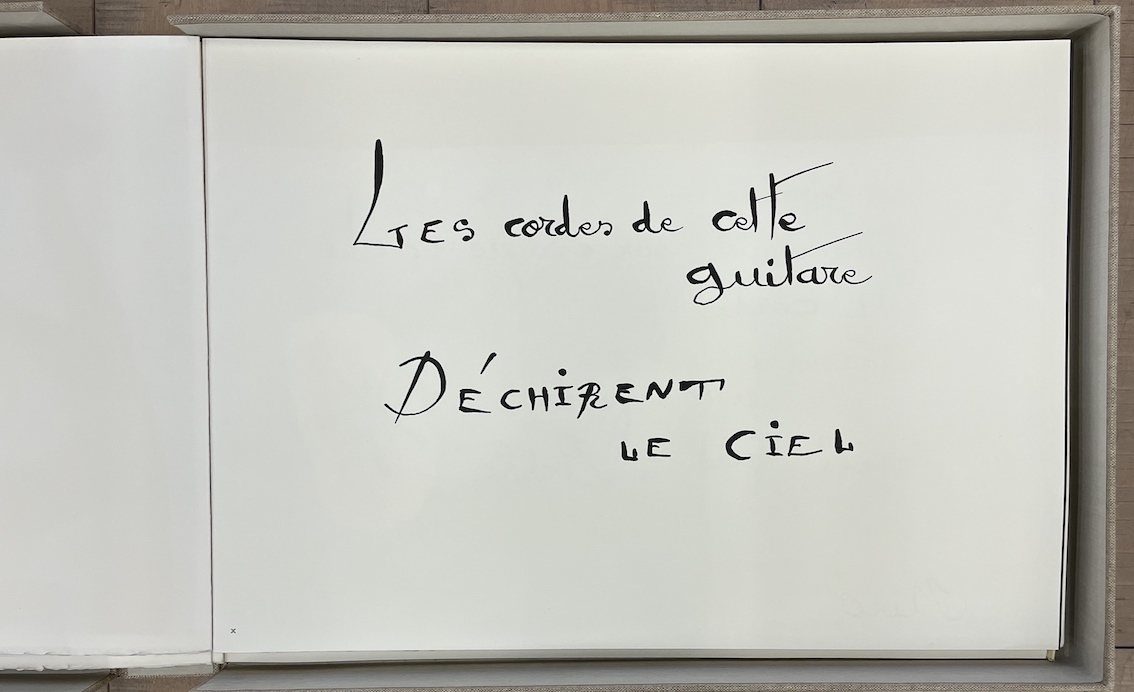 LES cordes de cette
guitare
DÉCHiRENT
LE CiEL
x